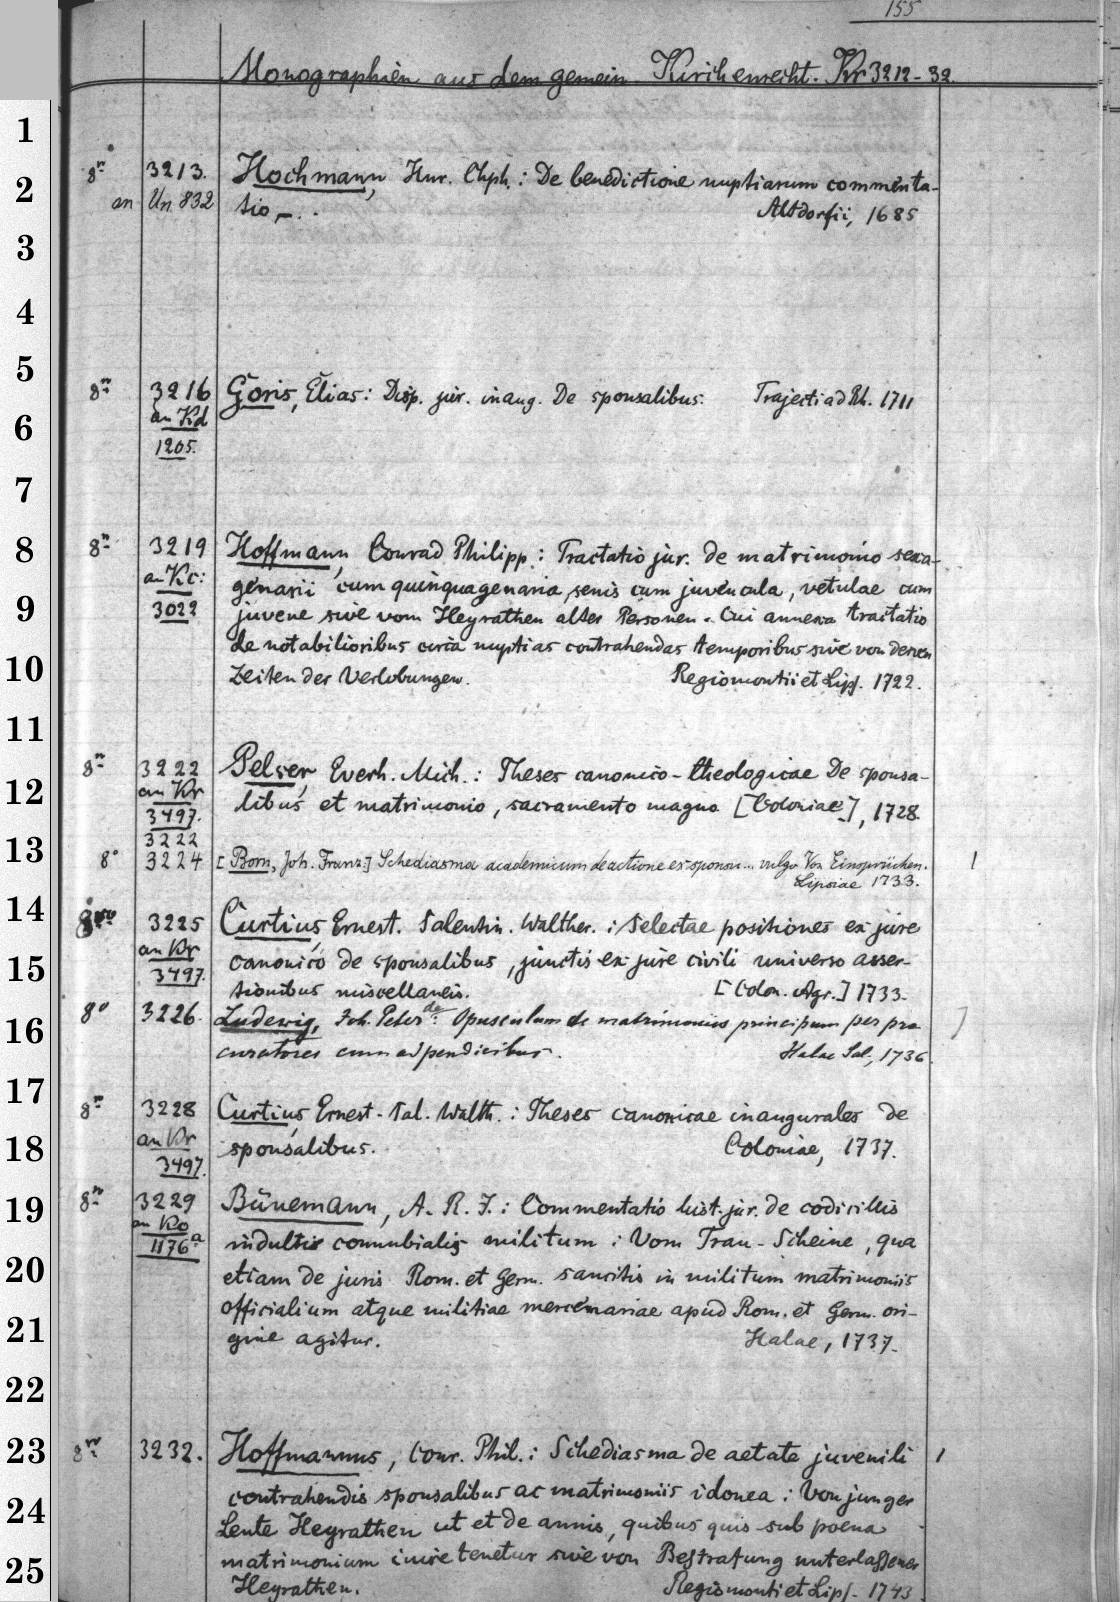 155
Monographien aus dem gemein. Kirchenrecht. Kr 3212-32.
1
8° 3213. Hochmann, Hnr. Chph.: De benedictione nuptiarum commenta-
2
an Un 832 tio, -. . Altdorfii, 1685
3
4
5
8° 3216 Goris, Elias: Disp. jur. inaug. De sponsalibus. Trajecti ad Rh. 1711
an Kd
6
1205.
7
8
8° 3219 Hoffmann, Conrad Philipp: Tractatio jur. de matrimonio sexa-
an Kc: genarii cum quinquagenaria, senis cum juvencula, vetulae cum
9
3022 juvene sive vom Heyrathen alter Personen. Cui annexa tractatio
de notabilioribus circa nuptias contrahendas temporibus sive von denen
10
Zeiten der Verlobungen. Regiomontii et Lips. 1722.
11
8° 3222 Pelser, Everh. Mich.: Theses canonico-theologicae De sponsa-
12
an Kr
3497. libus et matrimonio, sacramento magno [Coloniae], 1728.
3222
13
8° 3224 [Born, Joh. Franz.] Schediasma academicum de actione ex sponsu... vulgo Von Einsprüchen.
Lipsiae 1733. 1
14
3225 Curtius, Ernest. Salentin. Walther.: Selectae positiones ex jure
an Kr
15
3497. canonico de sponsalibus, junctis ex jure civili universo asser-
tionibus miscellaneis. [Colon. Agr.] 1733.
16
8° 3226. Ludewig, Joh. Peter de: Opusculum de matrimoniis principum per pro
curatores cum adpendicibus. Halae Sal., 1736.
17
8° 3228 Curtius, Ernest. Sal. Walth.: Theses canonicae inaugurales de
18
an Kr sponsalibus. Coloniae, 1737.
3497.
19
8° 3229 Bünemann, A. R. J.: Commentatio hist. jur. de codicillis
an Ko
1176a indultis connubialis militum: Vom Trau-Scheine, qua
20
etiam de juris Rom. et Germ. sancitis in militum matrimoniis
officialium atque militiae mercenariae apud Rom. et Germ. ori-
21
gine agitur. Halae, 1737.
22
23
8° 3232. Hoffmannus, Conr. Phil.: Schediasma de aetate juvenili 1
contrahendis sponsalibus ac matrimoniis idonea: Von junger
24
Leute Heyrathen ut et de annis, quibus quis sub poena
matrimonium inire tenetur sive von Bestrafung unterlassener
25
Heyrathen. Regiomonti et Lips. 1743